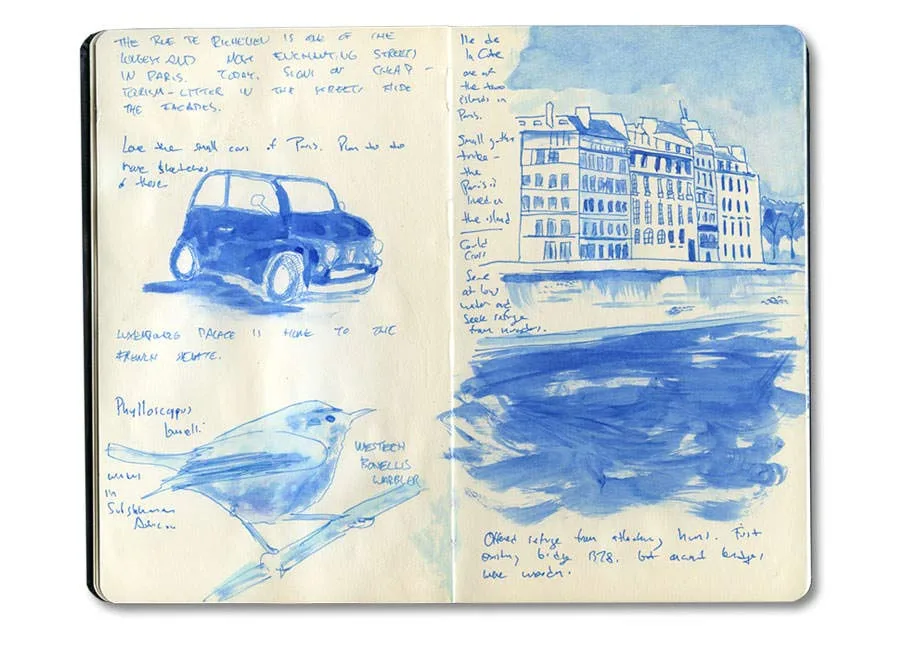 THE RUE DE RICHELIEU IS ONE OF THE
LONGEST AND MOST ENCHANTING STREETS
IN PARIS. TODAY, SIGNS OF CHEAP -
TOURISM - LITTER IN THE STREETS HIDE
THE FACADES.
Love the small cars of Paris. Plan to do
more sketches
of these
LUXEMBOURG PALACE IS HOME TO THE
FRENCH SENATE.
Phylloscopus
bonelli
WESTERN
BONELLIS
WARBLER
in
Ile de
la Cite
one of
the two
islands in
Paris.
Small
tribe -
the
Parisii
lived on
the island
Could
Cross
Seine
at low
water and
Seek refuge
from invaders.
Offered refuge from attacking huns. First
existing bridge 1378, but ancient bridges
were wooden.